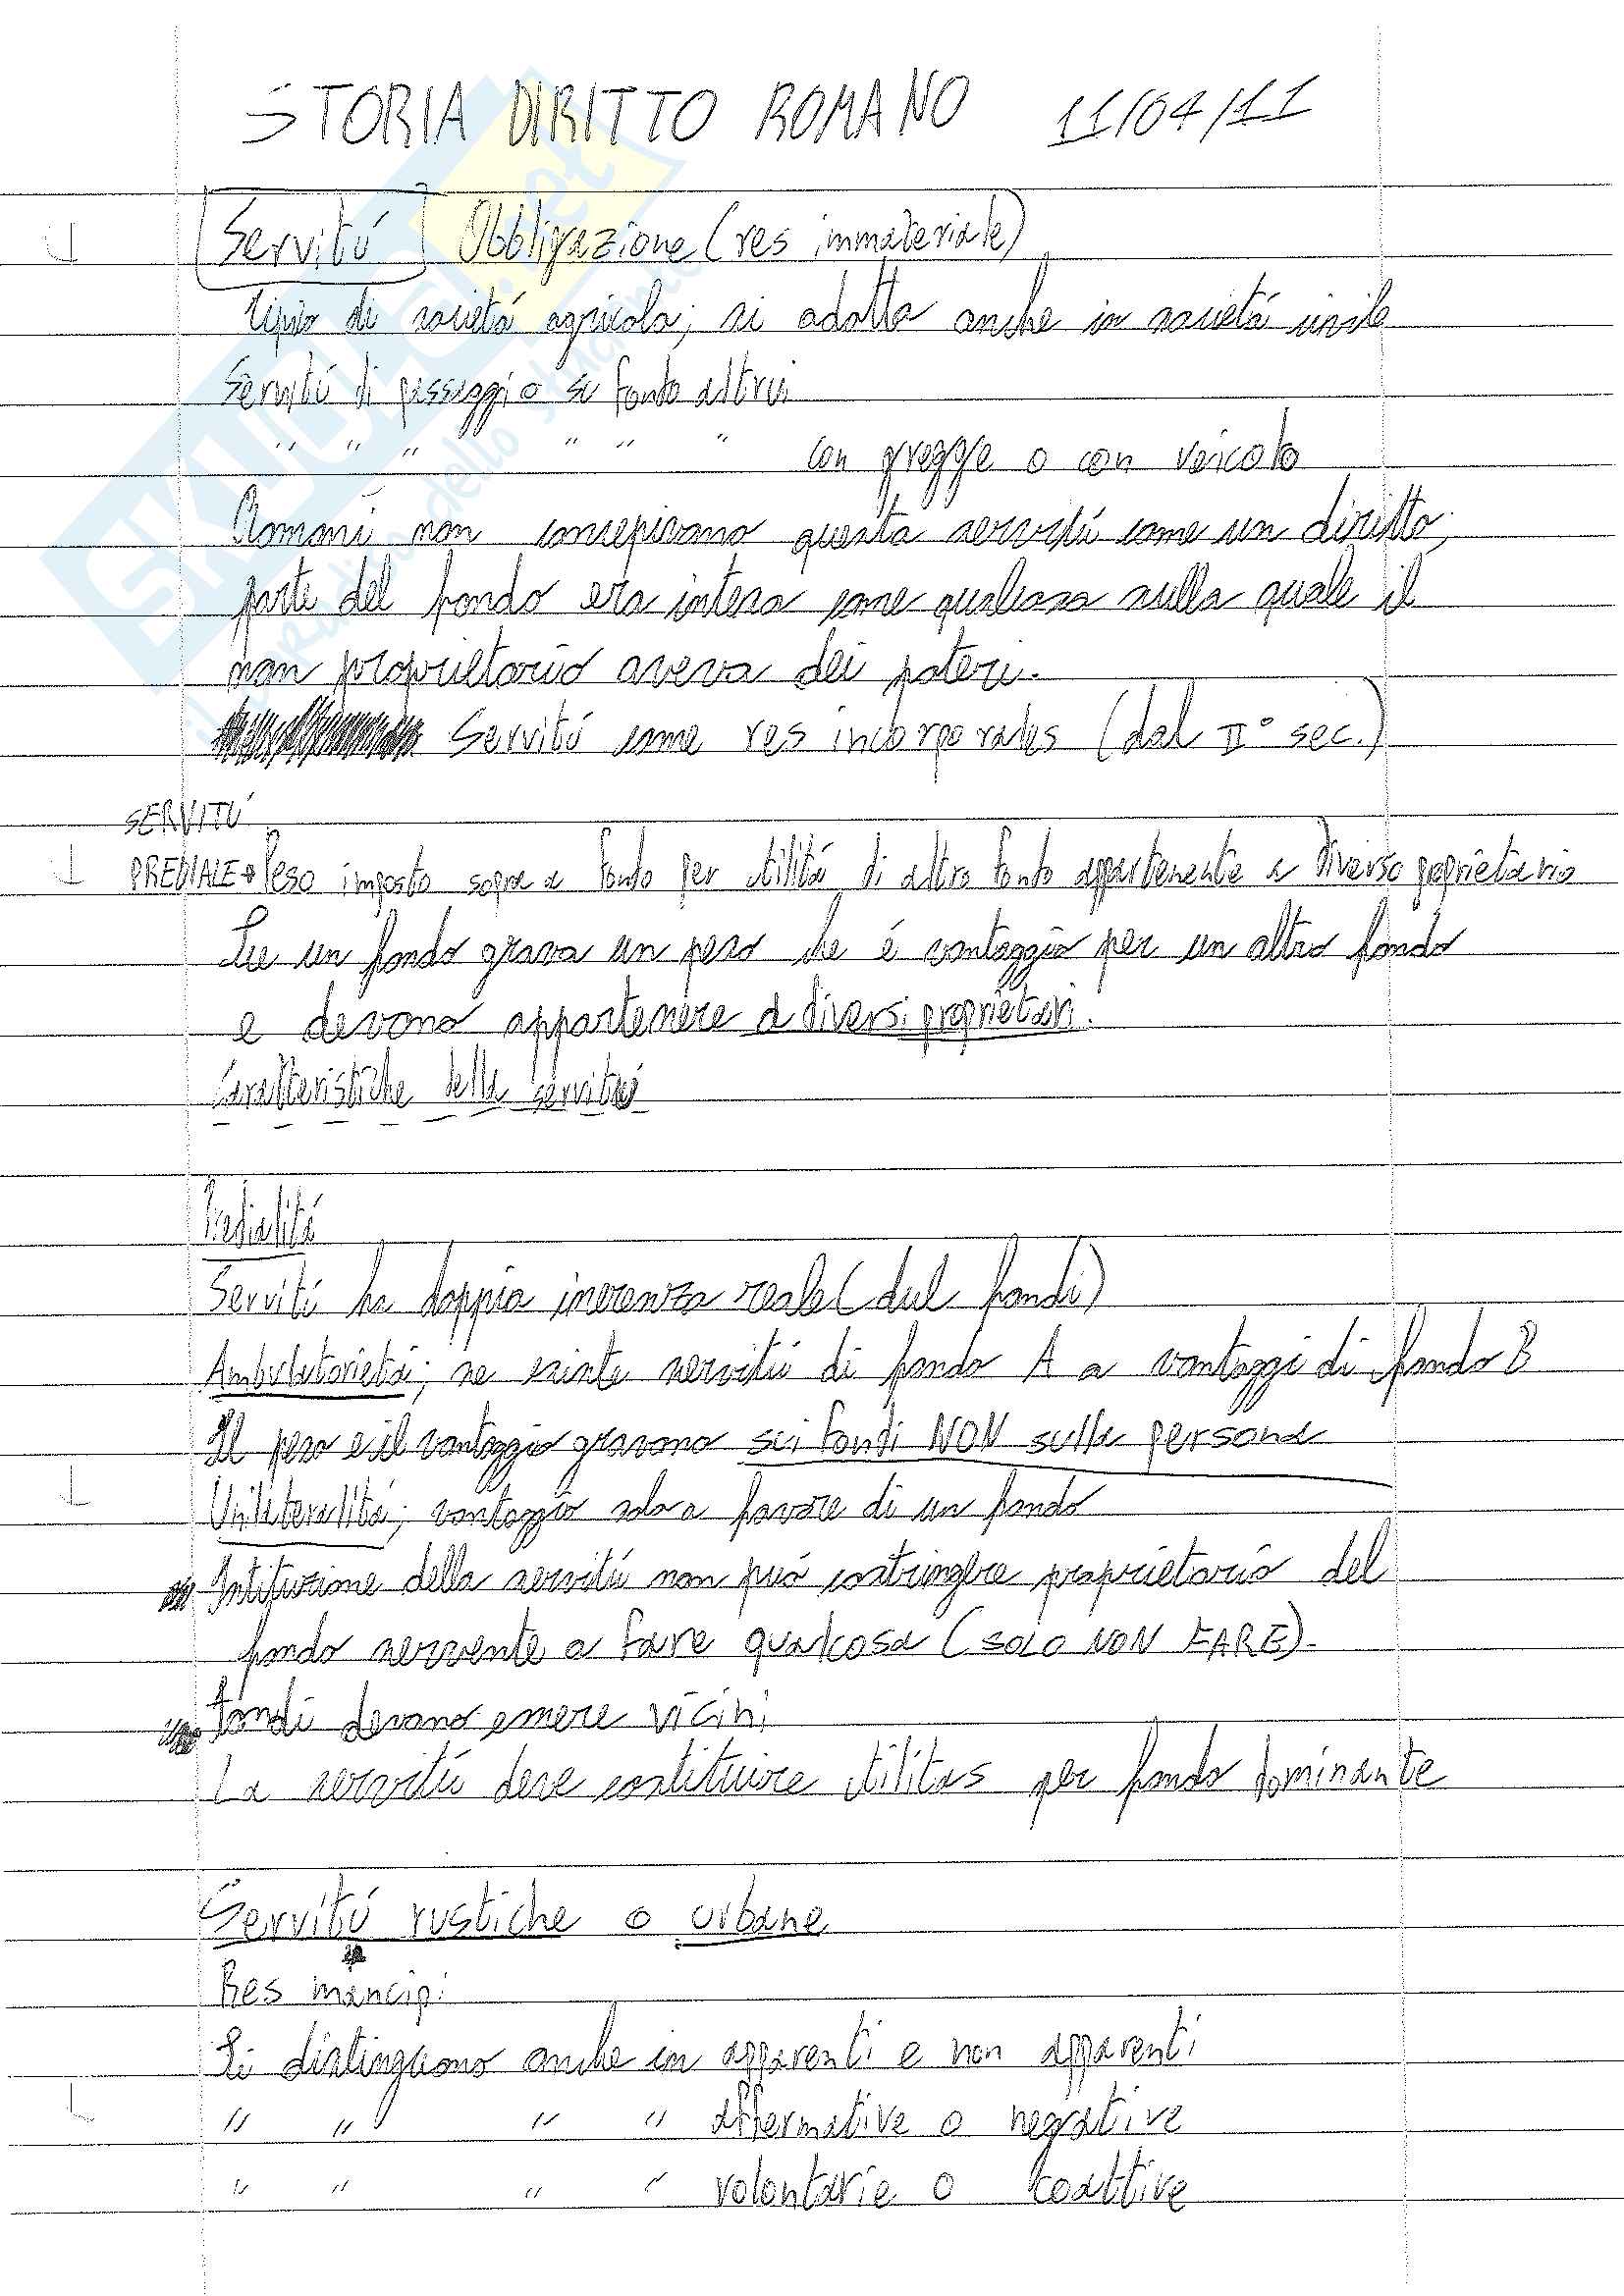 STORIA DIRITTO ROMANO 11/04/11
Servitú Obbligazione (res immateriale)
tipico di societá agricola; si adatta anche in societá civile
Servitú di passaggio su fondo altrui
" " " " " " con gregge o con veicolo
Romani non concepivano questa servitú come un diritto;
parte del fondo era intesa come qualcosa sulla quale il
non proprietario aveva dei poteri.
Servitú come res incorporales (dal II° sec.)
SERVITÚ
PREDIALE → Peso imposto sopra a fondo per utilitá di altro fondo appartenente a diverso proprietario
Su un fondo grava un peso che é vantaggio per un altro fondo
e devono appartenere a diversi proprietari.
Caratteristiche della servitú
Predialitá
Servitú ha doppia inerenza reale (dul fondi)
Ambulatorietá; se esiste servitú di fondo A a vantaggi di fondo B
Il peso e il vantaggio gravano sui fondi NON sulla persona
Unilateralitá; vantaggio solo a favore di un fondo
Istituzione della servitú non puó costringere proprietario del
fondo servente a fare qualcosa (SOLO NON FARE).
Fondi devono essere vicini
La servitú deve costituire utilitas per fondo dominante
Servitú rustiche o urbane
Res mancipi
Si distinguono anche in apparenti e non apparenti
" " " " affermative o negative
" " " " volontarie o coattive
SKUOLA.net